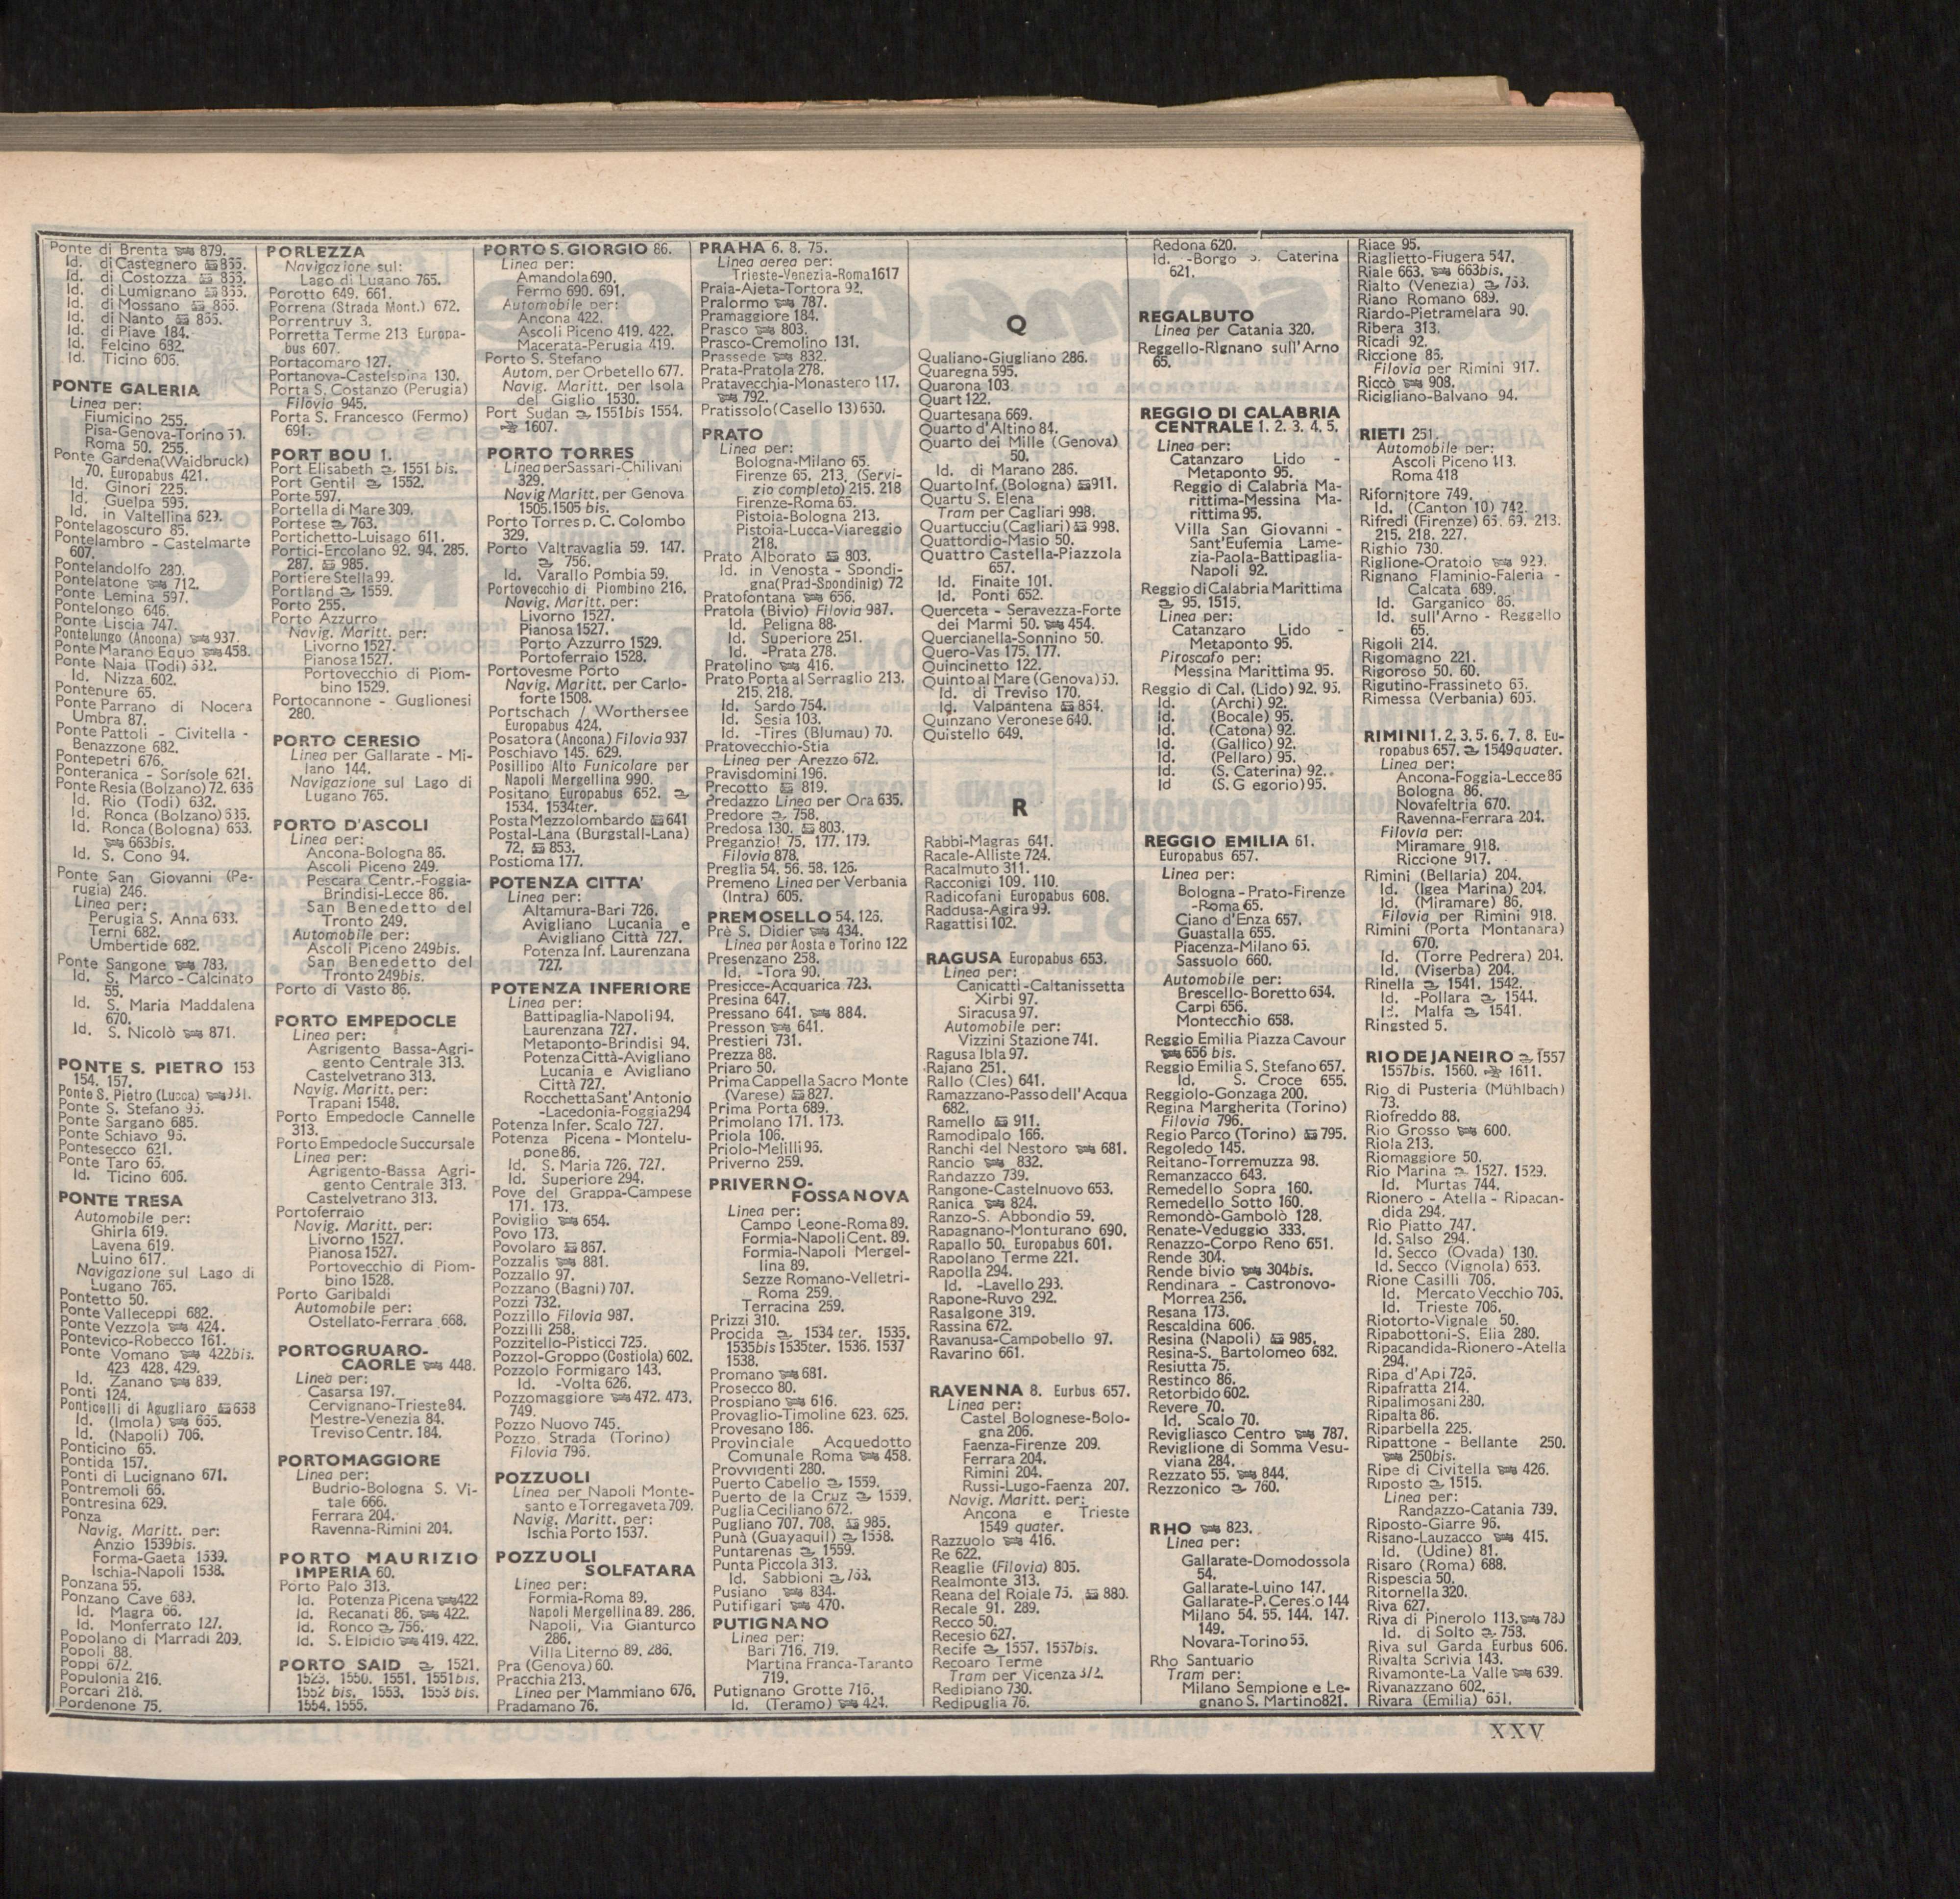 Ponte di Brenta 879.
Id. di Castegnero 855.
Id. di Costozza 855.
Id. di Lumignano 855.
Id. di Mossano 855.
Id. di Nanto 855.
Id. di Piave 184.
Id. Felcino 682.
Id. Ticino 605.
PONTE GALERIA
Linea per:
Fiumicino 255.
Pisa-Genova-Torino 50.
Roma 50. 255.
Ponte Gardena(Waidbruck)
70. Europabus 421.
Id. Ginori 225.
Id. Guelpa 595.
Id. in Valtellina 629.
Pontelagoscuro 85.
Pontelambro - Castelmarte
607.
Pontelandolfo 280.
Pontelatone 712.
Ponte Lemina 597.
Pontelongo 646.
Ponte Liscia 747.
Pontelungo (Ancona) 937.
Ponte Marano Equo 458.
Ponte Naia (Todi) 632.
Id. Nizza 602.
Pontenure 65.
Ponte Parrano di Nocera
Umbra 87.
Ponte Pattoli - Civitella -
Benazzone 682.
Pontepetri 676.
Ponteranica - Sorisole 621.
Ponte Resia (Bolzano) 72. 635
Id. Rio (Todi) 632.
Id. Ronca (Bolzano) 635.
Id. Ronca (Bologna) 653.
663bis.
Id. S. Cono 94.
Ponte San Giovanni (Pe-
rugia) 246.
Linea per:
Perugia S. Anna 633.
Terni 682.
Umbertide 682.
Ponte Sangone 783.
Id. S. Marco - Calcinato
55.
Id. S. Maria Maddalena
670.
Id. S. Nicolò 871.
PONTE S. PIETRO 153
154. 157.
Ponte S. Pietro (Lucca) 931.
Ponte S. Stefano 95.
Ponte Sargano 685.
Ponte Schiavo 95.
Pontesecco 621.
Ponte Taro 65.
Id. Ticino 606.
PONTE TRESA
Automobile per:
Ghirla 619.
Lavena 619.
Luino 617.
Navigazione sul Lago di
Lugano 765.
Pontetto 50.
Ponte Valleceppi 682.
Ponte Vezzola 424.
Pontevico-Robecco 161.
Ponte Vomano 422bis.
423 428. 429.
Id. Zanano 839.
Ponti 124.
Ponticelli di Agugliaro 658
Id. (Imola) 655.
Id. (Napoli) 706.
Ponticino 65.
Pontida 157.
Ponti di Lucignano 671.
Pontremoli 66.
Pontresina 629.
Ponza
Navig. Maritt. per:
Anzio 1539bis.
Forma-Gaeta 1539.
Ischia-Napoli 1538.
Ponzana 55.
Ponzano Cave 689.
Id. Magra 66.
Id. Monferrato 127.
Popolano di Marradi 209.
Popoli 88.
Poppi 672.
Populonia 216.
Porcari 218.
Pordenone 75.
PORLEZZA
Navigazione sul:
Lago di Lugano 765.
Porotto 649. 661.
Porrena (Strada Mont.) 672.
Porrentruy 3.
Porretta Terme 213 Europa-
bus 607.
Portacomaro 127.
Portanova-Castelspina 130.
Porta S. Costanzo (Perugia)
Filovia 945.
Porta S. Francesco (Fermo)
691.
PORT BOU 1.
Port Elisabeth 1551 bis.
Port Gentil 1552.
Porte 597.
Portella di Mare 309.
Portese 763.
Portichetto-Luisago 611.
Portici-Ercolano 92. 94. 285.
287. 985.
Portiere Stella 99.
Portland 1559.
Porto 255.
Porto Azzurro
Navig. Maritt. per:
Livorno 1527.
Pianosa 1527.
Portovecchio di Piom-
bino 1529.
Portocannone - Guglionesi
280.
PORTO CERESIO
Linea per Gallarate - Mi-
lano 144.
Navigazione sul Lago di
Lugano 765.
PORTO D'ASCOLI
Linea per:
Ancona-Bologna 86.
Ascoli Piceno 249.
Pescara Centr.-Foggia-
Brindisi-Lecce 86.
San Benedetto del
Tronto 249.
Automobile per:
Ascoli Piceno 249bis.
San Benedetto del
Tronto 249bis.
Porto di Vasto 86.
PORTO EMPEDOCLE
Linea per:
Agrigento Bassa-Agri-
gento Centrale 313.
Castelvetrano 313.
Navig. Maritt. per:
Trapani 1548.
Porto Empedocle Cannelle
313.
Porto Empedocle Succursale
Linea per:
Agrigento-Bassa Agri-
gento Centrale 313.
Castelvetrano 313.
Portoferraio
Navig. Maritt. per:
Livorno 1527.
Pianosa 1527.
Portovecchio di Piom-
bino 1528.
Porto Garibaldi
Automobile per:
Ostellato-Ferrara 668.
PORTOGRUARO-
CAORLE 448.
Linea per:
Casarsa 197.
Cervignano-Trieste 84.
Mestre-Venezia 84.
Treviso Centr. 184.
PORTOMAGGIORE
Linea per:
Budrio-Bologna S. Vi-
tale 666.
Ferrara 204.
Ravenna-Rimini 204.
PORTO MAURIZIO
IMPERIA 60.
Porto Palo 313.
Id. Potenza Picena 422
Id. Recanati 86. 422.
Id. Ronco 756.
Id. S. Elpidio 419. 422.
PORTO SAID 1521.
1523. 1550. 1551. 1551bis.
1552 bis. 1553. 1553 bis.
1554. 1555.
PORTO S. GIORGIO 86.
Linea per:
Amandola 690.
Fermo 690. 691.
Automobile per:
Ancona 422.
Ascoli Piceno 419. 422.
Macerata-Perugia 419.
Porto S. Stefano
Autom. per Orbetello 677.
Navig. Maritt. per Isola
del Giglio 1530.
Port Sudan 1551bis 1554.
1607.
PORTO TORRES
Linea per Sassari-Chilivani
329.
Navig Maritt. per Genova
1505.1505 bis.
Porto Torres p. C. Colombo
329.
Porto Valtravaglia 59. 147.
756.
Id. Varallo Pombia 59.
Portovecchio di Piombino 216.
Navig. Maritt. per:
Livorno 1527.
Pianosa 1527.
Porto Azzurro 1529.
Portoferraio 1528.
Portovesme Porto
Navig. Maritt. per Carlo-
forte 1508.
Portschach / Worthersee
Europabus 424.
Posatora (Ancona) Filovia 937
Poschiavo 145. 629.
Posillipo Alto Funicolare per
Napoli Mergellina 990.
Positano Europabus 652.
1534. 1534ter.
Posta Mezzolombardo 641
Postal-Lana (Burgstall-Lana)
72. 853.
Postioma 177.
POTENZA CITTA'
Linea per:
Altamura-Bari 726.
Avigliano Lucania e
Avigliano Città 727.
Potenza Inf. Laurenzana
727.
POTENZA INFERIORE
Linea per:
Battipaglia-Napoli 94.
Laurenzana 727.
Metaponto-Brindisi 94.
Potenza Città-Avigliano
Lucania e Avigliano
Città 727.
Rocchetta Sant'Antonio
-Lacedonia-Foggia 294
Potenza Infer. Scalo 727.
Potenza Picena - Montelu-
pone 86.
Id. S. Maria 726. 727.
Id. Superiore 294.
Pove del Grappa-Campese
171. 173.
Poviglio 654.
Povo 173.
Povolaro 867.
Pozzalis 881.
Pozzallo 97.
Pozzano (Bagni) 707.
Pozzi 732.
Pozzillo Filovia 987.
Pozzilli 258.
Pozzitello-Pisticci 725.
Pozzol-Groppo (Costiola) 602.
Pozzolo Formigaro 143.
Id. -Volta 626.
Pozzomaggiore 472. 473.
749.
Pozzo Nuovo 745.
Pozzo Strada (Torino)
Filovia 796.
POZZUOLI
Linea per Napoli Monte-
santo e Torregaveta 709.
Navig. Maritt. per:
Ischia Porto 1537.
POZZUOLI
SOLFATARA
Linea per:
Formia-Roma 89.
Napoli Mergellina 89. 286.
Napoli, Via Gianturco
286.
Villa Literno 89. 286.
Pra (Genova) 60.
Pracchia 213.
Linea per Mammiano 676.
Pradamano 76.
PRAHA 6. 8. 75.
Linea aerea per:
Trieste-Venezia-Roma 1617
Praia-Ajeta-Tortora 92.
Pralormo 787.
Pramaggiore 184.
Prasco 803.
Prasco-Cremolino 131.
Prassede 832.
Prata-Pratola 278.
Pratavecchia-Monastero 117.
792.
Pratissolo (Casello 13) 650.
PRATO
Linea per:
Bologna-Milano 65.
Firenze 65. 213. (Servi-
zio completo) 215. 218
Firenze-Roma 65.
Pistoia-Bologna 213.
Pistoia-Lucca-Viareggio
218.
Prato Alborato 803.
Id. in Venosta - Spondi-
gna(Prad-Spondinig) 72
Pratofontana 656.
Pratola (Bivio) Filovia 987.
Id. Peligna 88.
Id. Superiore 251.
Id. -Prata 278.
Pratolino 416.
Prato Porta al Serraglio 213.
215. 218.
Id. Sardo 754.
Id. Sesia 103.
Id. -Tires (Blumau) 70.
Pratovecchio-Stia
Linea per Arezzo 672.
Pravisdomini 196.
Precotto 819.
Predazzo Linea per Ora 635.
Predore 758.
Predosa 130. 803.
Preganziol 75. 177. 179.
Filovia 878.
Preglia 54. 56. 58. 126.
Premeno Linea per Verbania
(Intra) 605.
PREMOSELLO 54. 126.
Prè S. Didier 434.
Linea per Aosta e Torino 122
Presenzano 258.
Id. -Tora 90.
Presicce-Acquarica 723.
Presina 647.
Pressano 641. 884.
Presson 641.
Prestieri 731.
Prezza 88.
Priaro 50.
Prima Cappella Sacro Monte
(Varese) 827.
Prima Porta 689.
Primolano 171. 173.
Priola 106.
Priolo-Melilli 96.
Priverno 259.
PRIVERNO-
FOSSANOVA
Linea per:
Campo Leone-Roma 89.
Formia-Napoli Cent. 89.
Formia-Napoli Mergel-
lina 89.
Sezze Romano-Velletri-
Roma 259.
Terracina 259.
Prizzi 310.
Procida 1534 ter. 1535.
1535bis 1535ter. 1536. 1537
1538.
Promano 681.
Prosecco 80.
Prospiano 616.
Provaglio-Timoline 623. 625.
Provesano 186.
Provinciale Acquedotto
Comunale Roma 458.
Provvidenti 280.
Puerto Cabello 1559.
Puerto de la Cruz 1559.
Puglia Ceciliano 672.
Pugliano 707. 708. 985.
Punà (Guayaquil) 1558.
Puntarenas 1559.
Punta Piccola 313.
Id. Sabbioni 763.
Pusiano 834.
Putifigari 470.
PUTIGNANO
Linea per:
Bari 716. 719.
Martina Franca-Taranto
719.
Putignano Grotte 716.
Id. (Teramo) 424.
Q
Qualiano-Giugliano 286.
Quaregna 595.
Quarona 103.
Quart 122.
Quartesana 669.
Quarto d'Altino 84.
Quarto dei Mille (Genova)
50.
Id. di Marano 286.
Quarto Inf. (Bologna) 911.
Quartu S. Elena
Tram per Cagliari 998.
Quartucciu (Cagliari) 998.
Quattordio-Masio 50.
Quattro Castella-Piazzola
657.
Id. Finaite 101.
Id. Ponti 652.
Querceta - Seravezza-Forte
dei Marmi 50. 454.
Quercianella-Sonnino 50.
Quero-Vas 175. 177.
Quincinetto 122.
Quinto al Mare (Genova) 50.
Id. di Treviso 170.
Id. Valpantena 864.
Quinzano Veronese 640.
Quistello 649.
R
Rabbi-Magras 641.
Racale-Alliste 724.
Racalmuto 311.
Racconigi 109. 110.
Radicofani Europabus 608.
Raddusa-Agira 99.
Ragattisi 102.
RAGUSA Europabus 653.
Linea per:
Canicatti-Caltanissetta
Xirbi 97.
Siracusa 97.
Automobile per:
Vizzini Stazione 741.
Ragusa Ibla 97.
Raiano 251.
Rallo (Cles) 641.
Ramazzano-Passo dell'Acqua
682.
Ramello 911.
Ramodipalo 166.
Ranchi del Nestoro 681.
Rancio 832.
Randazzo 739.
Rangone-Castelnuovo 653.
Ranica 824.
Ranzo-S. Abbondio 59.
Rapagnano-Monturano 690.
Rapallo 50. Europabus 601.
Rapolano Terme 221.
Rapolla 294.
Id. -Lavello 293.
Rapone-Ruvo 292.
Rasalgone 319.
Rassina 672.
Ravanusa-Campobello 97.
Ravarino 661.
RAVENNA 8. Eurbus 657.
Linea per:
Castel Bolognese-Bolo-
gna 206.
Faenza-Firenze 209.
Ferrara 204.
Rimini 204.
Russi-Lugo-Faenza 207.
Navig. Maritt. per:
Ancona e Trieste
1549 quater.
Razzuolo 416.
Re 622.
Reaglie (Filovia) 805.
Realmonte 313.
Reana del Roiale 75. 880.
Recale 91. 289.
Recco 50.
Recesio 627.
Recife 1557. 1557bis.
Recoaro Terme
Tram per Vicenza 372.
Redipiano 730.
Redipuglia 76.
Redona 620.
Id. -Borgo S. Caterina
621.
REGALBUTO
Linea per Catania 320.
Reggello-Rignano sull'Arno
65.
REGGIO DI CALABRIA
CENTRALE 1. 2. 3. 4. 5.
Linea per:
Catanzaro Lido -
Metaponto 95.
Reggio di Calabria Ma-
rittima-Messina Ma-
rittima 95.
Villa San Giovanni -
Sant'Eufemia Lame-
zia-Paola-Battipaglia-
Napoli 92.
Reggio di Calabria Marittima
95. 1515.
Linea per:
Catanzaro Lido -
Metaponto 95.
Piroscafo per:
Messina Marittima 95.
Reggio di Cal. (Lido) 92. 95.
Id. (Archi) 92.
Id. (Bocale) 95.
Id. (Catona) 92.
Id. (Gallico) 92.
Id. (Pellaro) 95.
Id. (S. Caterina) 92.
Id (S. G egorio) 95.
REGGIO EMILIA 61.
Europabus 657.
Linea per:
Bologna-Prato-Firenze
-Roma 65.
Ciano d'Enza 657.
Guastalla 655.
Piacenza-Milano 65.
Sassuolo 660.
Automobile per:
Brescello-Boretto 654.
Carpi 656.
Montecchio 658.
Reggio Emilia Piazza Cavour
656 bis.
Reggio Emilia S. Stefano 657.
Id. S. Croce 655.
Reggiolo-Gonzaga 200.
Regina Margherita (Torino)
Filovia 796.
Regio Parco (Torino) 795.
Regoledo 145.
Reitano-Torremuzza 98.
Remanzacco 643.
Remedello Sopra 160.
Remedello Sotto 160.
Remondò-Gambolò 128.
Renate-Veduggio 333.
Renazzo-Corpo Reno 651.
Rende 304.
Rende bivio 304bis.
Rendinara - Castronovo-
Morrea 256.
Resana 173.
Rescaldina 606.
Resina (Napoli) 985.
Resina-S. Bartolomeo 682.
Resiutta 75.
Restinco 86.
Retorbido 602.
Revere 70.
Id. Scalo 70.
Revigliasco Centro 787.
Reviglione di Somma Vesu-
viana 284.
Rezzato 55. 844.
Rezzonico 760.
RHO 823.
Linea per:
Gallarate-Domodossola
54.
Gallarate-Luino 147.
Gallarate-P. Ceresio 144
Milano 54. 55. 144. 147.
149.
Novara-Torino 55.
Rho Santuario
Tram per:
Milano Sempione e Le-
gnano S. Martino 821.
Riace 95.
Riaglietto-Fiugera 547.
Riale 663. 663bis.
Rialto (Venezia) 763.
Riano Romano 689.
Riardo-Pietramelara 90.
Ribera 313.
Ricadi 92.
Riccione 86.
Filovia per Rimini 917.
Riccò 908.
Ricigliano-Balvano 94.
RIETI 251.
Automobile per:
Ascoli Piceno 413.
Roma 418
Rifornitore 749.
Id. (Canton 10) 742.
Rifredi (Firenze) 65. 69. 213.
215. 218. 227.
Righio 730.
Riglione-Oratoio 929.
Rignano Flaminio-Faleria -
Calcata 689.
Id. Garganico 86.
Id. sull'Arno - Reggello
65.
Rigoli 214.
Rigomagno 221.
Rigoroso 50. 60.
Rigutino-Frassineto 65.
Rimessa (Verbania) 605.
RIMINI 1. 2. 3. 5. 6. 7. 8. Eu-
ropabus 657. 1549quater.
Linea per:
Ancona-Foggia-Lecce 86
Bologna 86.
Novafeltria 670.
Ravenna-Ferrara 204.
Filovia per:
Miramare 918.
Riccione 917.
Rimini (Bellaria) 204.
Id. (Igea Marina) 204.
Id. (Miramare) 86.
Filovia per Rimini 918.
Rimini (Porta Montanara)
670.
Id. (Torre Pedrera) 204.
Id. (Viserba) 204.
Rinella 1541. 1542.
Id. -Pollara 1544.
Id. Malfa 1541.
Ringsted 5.
RIO DE JANEIRO 1557
1557bis. 1560. 1611.
Rio di Pusteria (Mühlbach)
73.
Riofreddo 88.
Rio Grosso 600.
Riola 213.
Riomaggiore 50.
Rio Marina 1527. 1529.
Id. Murtas 744.
Rionero - Atella - Ripacan-
dida 294.
Rio Piatto 747.
Id. Salso 294.
Id. Secco (Ovada) 130.
Id. Secco (Vignola) 653.
Rione Casilli 706.
Id. Mercato Vecchio 705.
Id. Trieste 706.
Riotorto-Vignale 50.
Ripabottoni-S. Elia 280.
Ripacandida-Rionero-Atella
294.
Ripa d'Api 725.
Ripafratta 214.
Ripalimosani 280.
Ripalta 86.
Riparbella 225.
Ripattone - Bellante 250.
250bis.
Ripe di Civitella 426.
Riposto 1515.
Linea per:
Randazzo-Catania 739.
Riposto-Giarre 96.
Risano-Lauzacco 415.
Id. (Udine) 81.
Risaro (Roma) 688.
Rispescia 50.
Ritornella 320.
Riva 627.
Riva di Pinerolo 113. 780
Id. di Solto 758.
Riva sul Garda Eurbus 606.
Rivalta Scrivia 143.
Rivamonte-La Valle 639.
Rivanazzano 602.
Rivara (Emilia) 651.
XXV